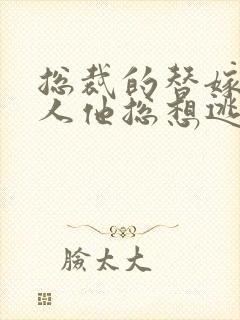 总裁的替嫁
人他总想逃
臉太大